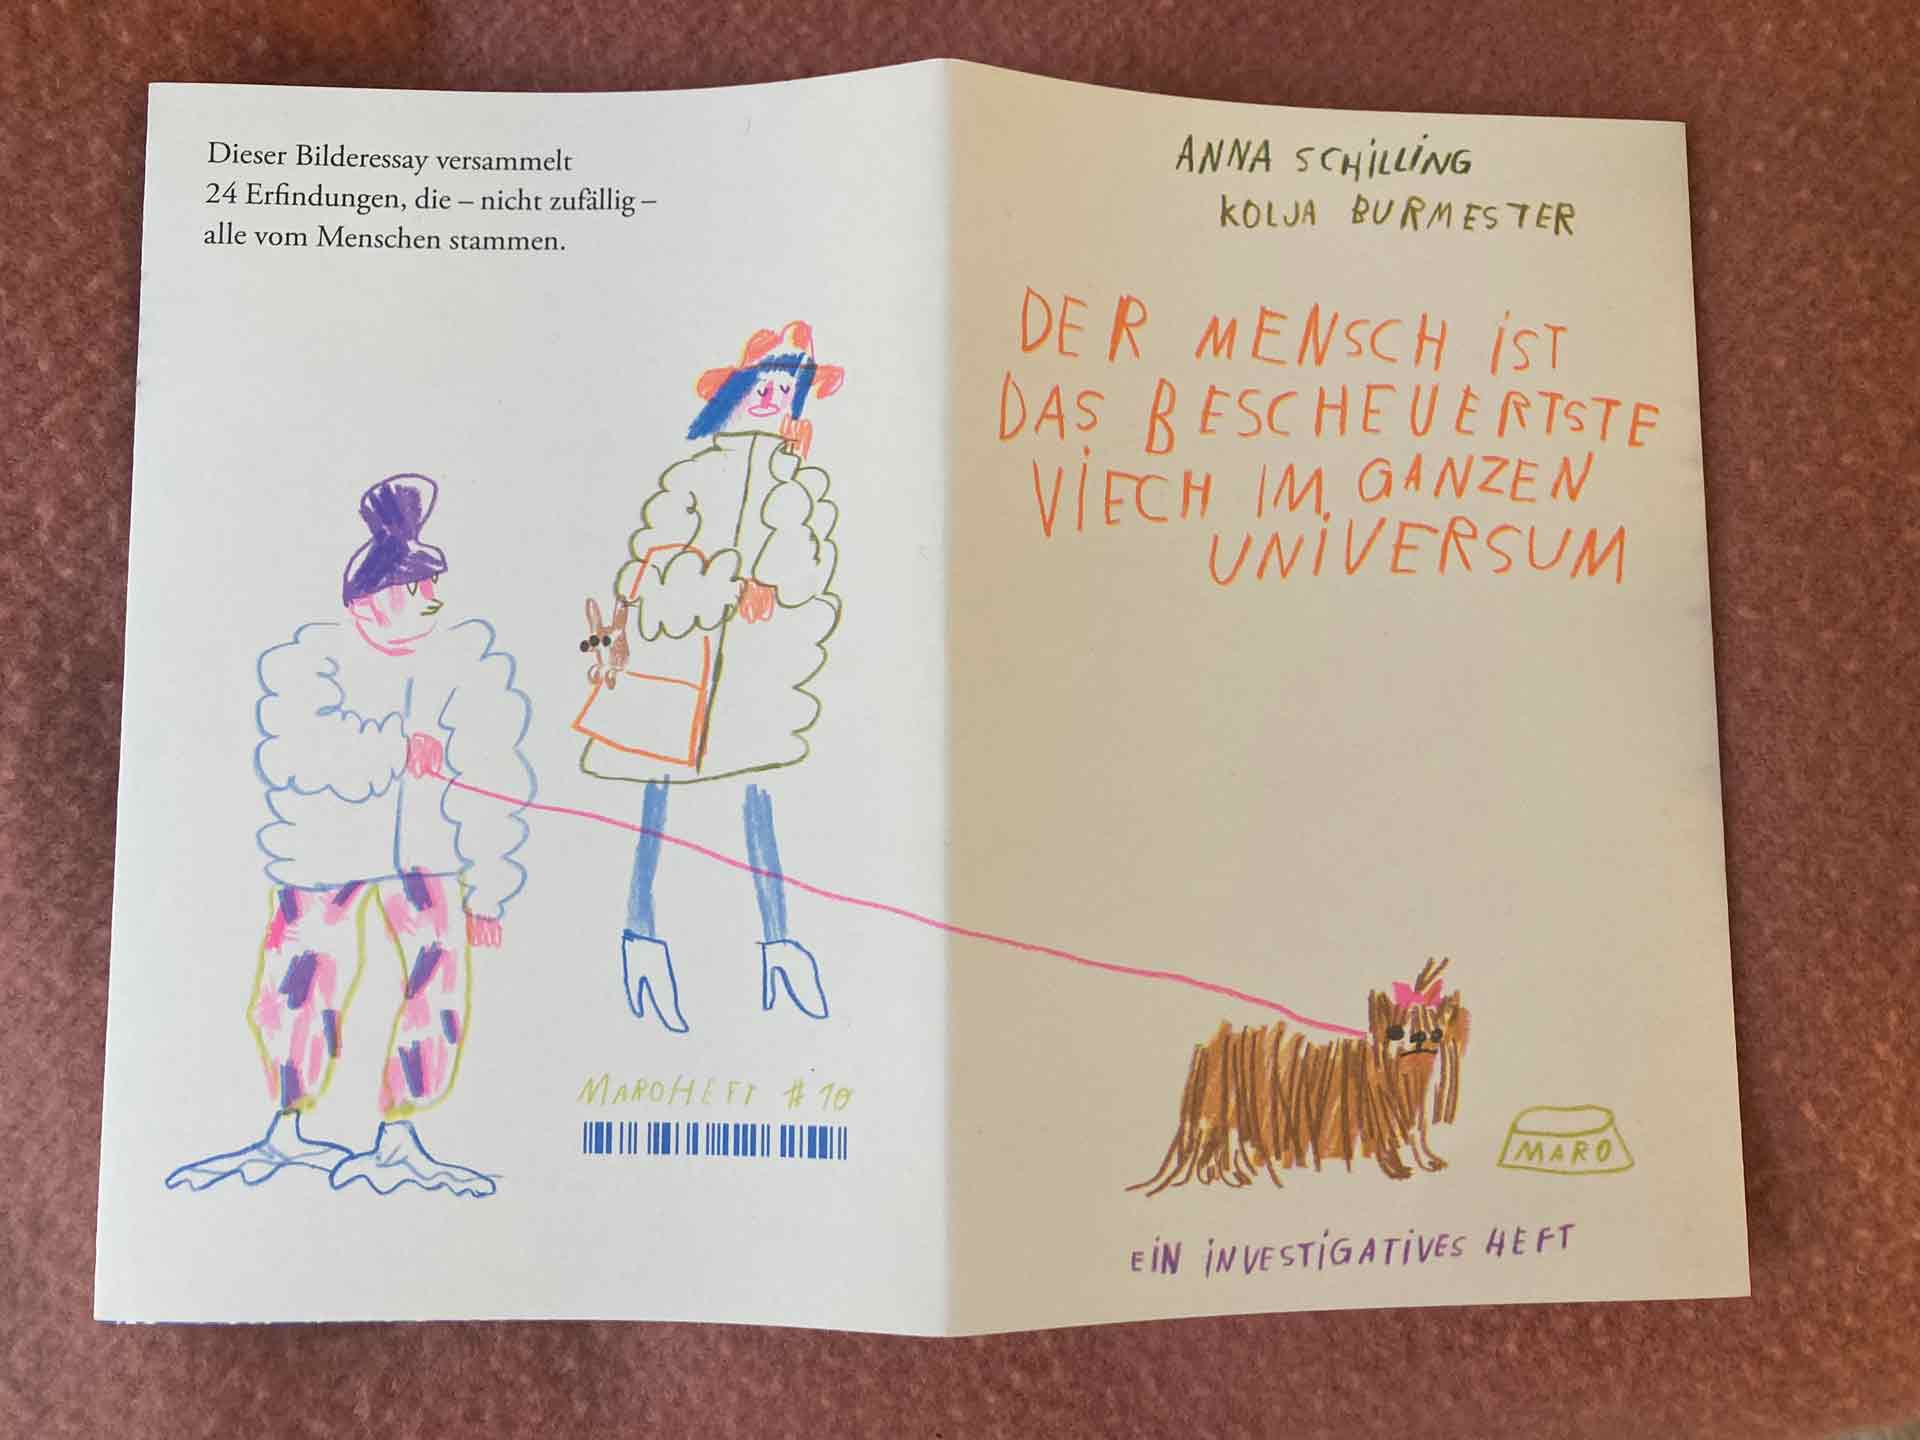 Dieser Bilderessay versammelt
24 Erfindungen, die – nicht zufällig –
alle vom Menschen stammen.
MAROHEFT #10
ANNA SCHiLLiNG
KOLJA BURMESTER
DER MENSCH iST
DAS BESCHEUERTSTE
ViECH IM GANZEN
UNiVERSUM
MARO
EiN iNVESTiGATiVES HEFT